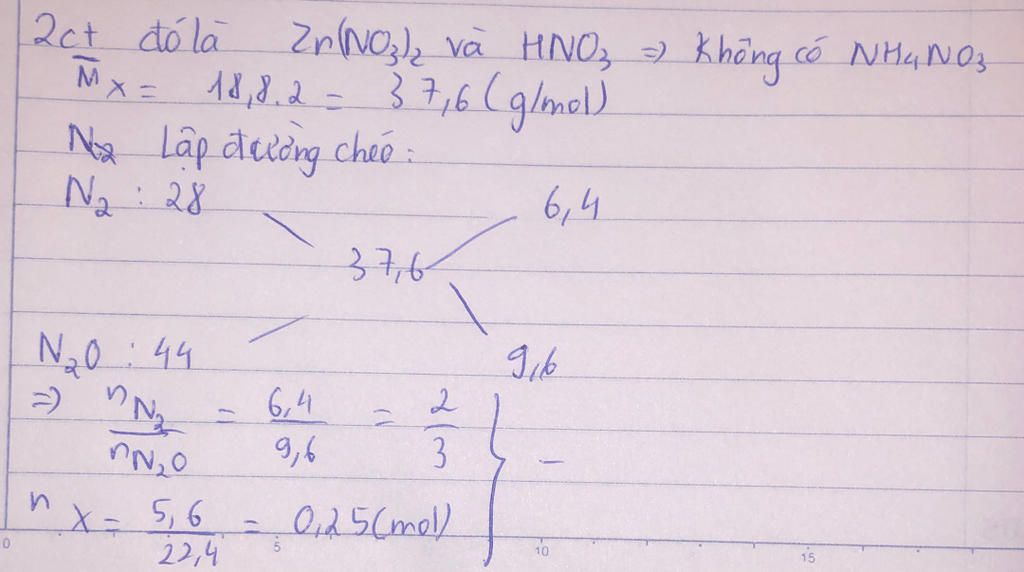 2ct đó là Zn(NO3)2 và HNO3 ⇒ không có NH4NO3
M̅x = 18,8.2 = 37,6 (g/mol)
Lập đường chéo:
N2 : 28 6,4
37,6
N2O : 44 9,6
⇒ nN2/nN2O = 6,4/9,6 = 2/3
nX = 5,6/22,4 = 0,25(mol) } –
0 5 10 15